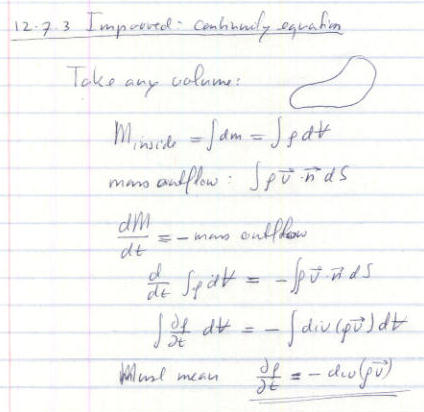 12.7.3 Improved: continuity equation
Take any volume:
M inside = ∫ dm = ∫ ρ dV
mass outflow: ∫ ρ v⃗ · n⃗ dS
dM/dt = - mass outflow
d/dt ∫ ρ dV = - ∫ ρ v⃗ · n⃗ dS
∫ ∂ρ/∂t dV = - ∫ div(ρv⃗) dV
Must mean ∂ρ/∂t = - div(ρv⃗)